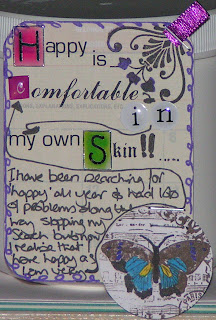 Happy
is
comfortable
in
my own
Skin!!.....
I have been searching for
'happy' all year & had lots
of problems along the
way stopping my
search but now
realise that
here happy as